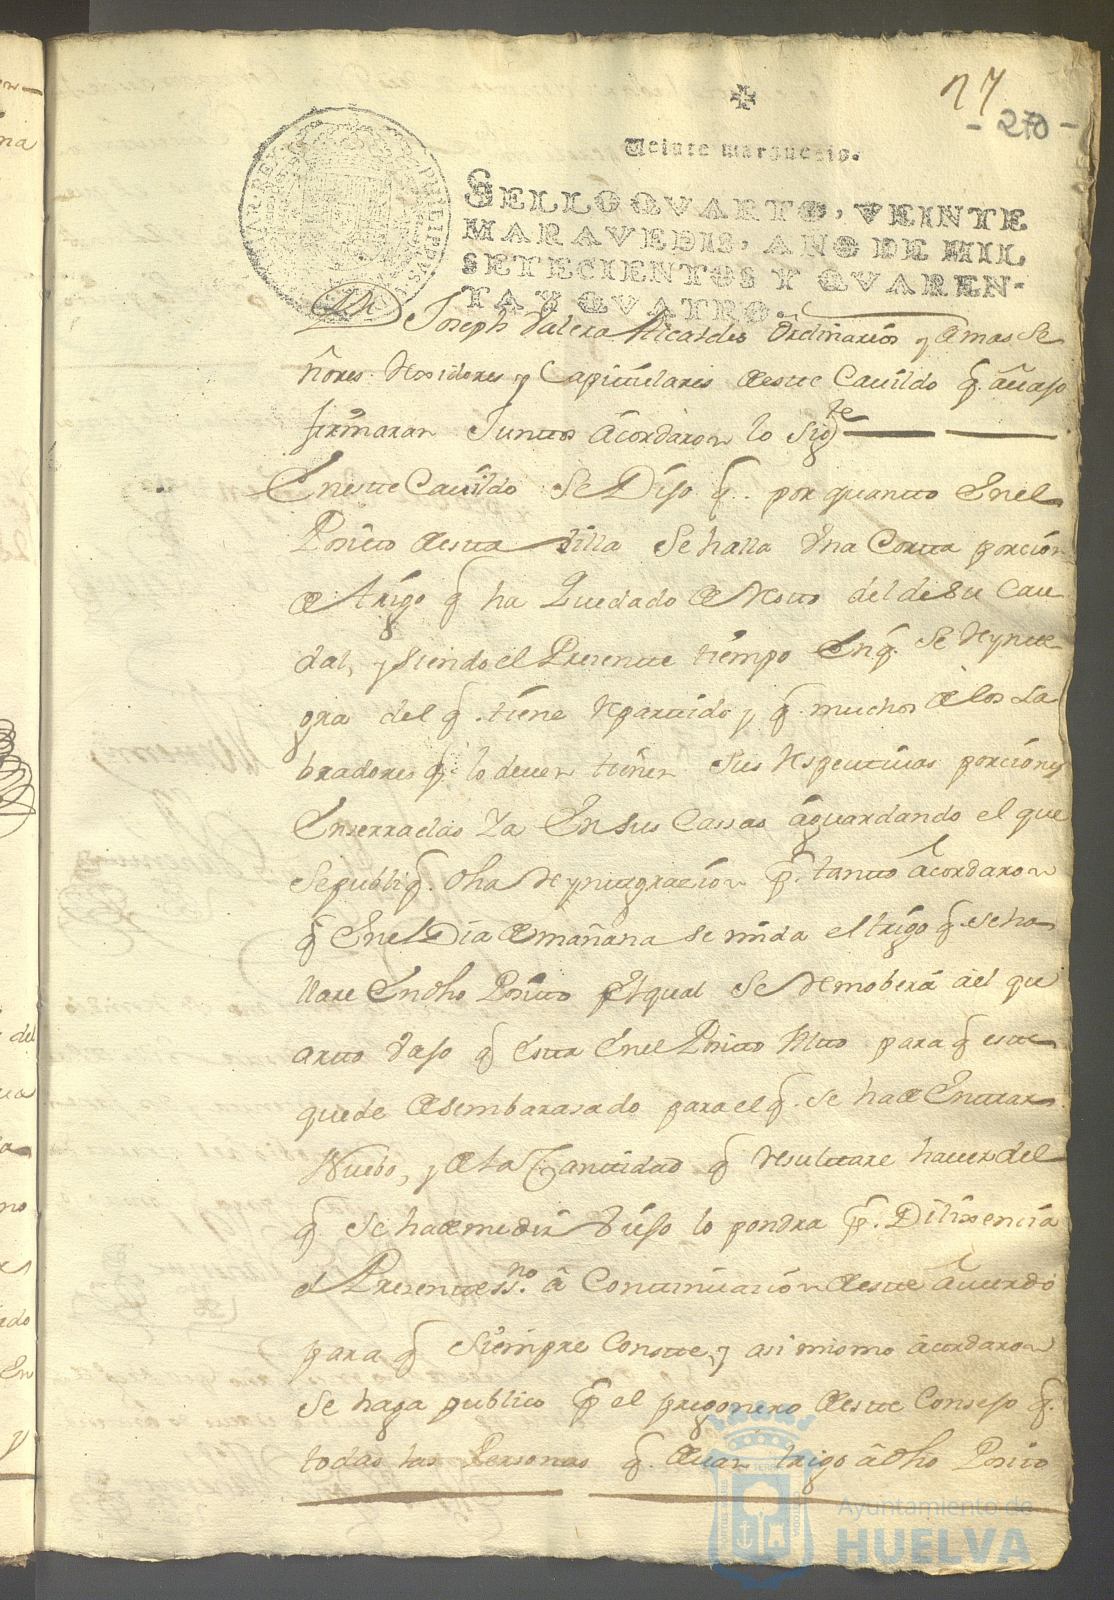 27
- 270 -
Veinte maravedis.
SELLO QVARTO, VEINTE
MARAVEDIS, AÑO DE MIL
SETECIENTOS Y QVAREN-
TA Y QVATRO.
Joseph Valera Alcaldes Ordinarios y demas Se
ñores Rexidores y Capitulares deste Cavildo q. avajo
firmaran Juntos acordaron lo Sigte
En este Cavildo Se Dijo q. por quanto En el
Posito desta Villa Se halla Vna Corta porcion
de trigo q ha Quedado de Resto del de Su Cau
dal, y siendo el Presente tiempo En q. Se Reynte
gra del q. tiene Repartido y q. muchos de los La
bradores q. lo deven tienen Sus Respectivas porciones
Enserradas Ya En sus Cassas aguardando el que
Se publiq. dha Reyntegracion p. tanto acordaron
q En el Dia de mañana se mida el trigo q. se ha
llare En dho Posito el qual Se Removerá a el qu
arto Vajo q Esta En el Posito Alto para q este
quede desembarasado para el q. se ha de Entrar
Nuebo, y de la Cantidad q resultare haver del
q Se ha de medir Vajo lo pondra p. Dilixencia
el Presente ssno. â Continuazion deste Acuerdo
para q Siempre Conste, y asi mismo acordaron
Se haga publico p el pregonero deste Consejo q.
todas las Personas q. devan trigo â dho Posito
Ayuntamiento de
HUELVA